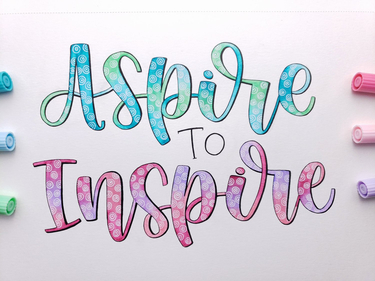 Aspire
TO
Inspire